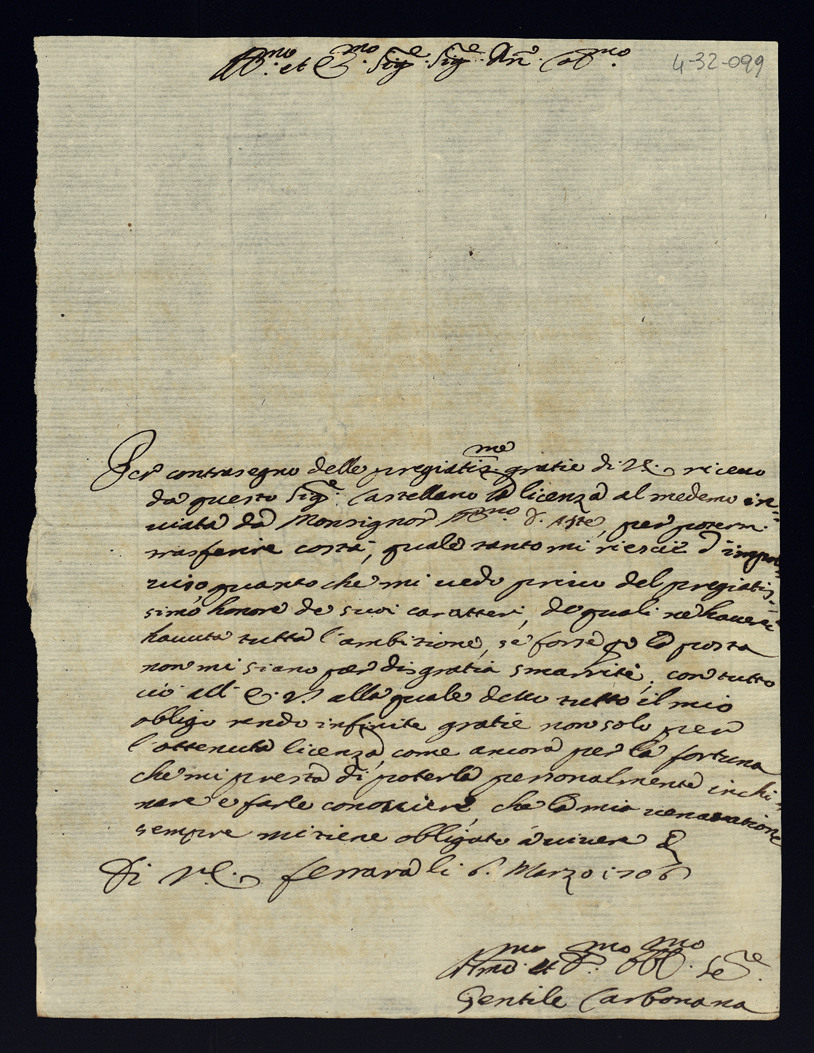 Ill.mo et Ecc.mo Sig.re Sig.re Pn̄e Col.mo
4-32-099
Per contrasegno delle pregiatis.me gratie di V.E. riceuo
da questo Sig.re Castellano la licenza al medemo in=
uiata da Monsignor Ill.mo d'Aste, per potermi
trasferire costà, quale tanto mi riescie d'impro
uiso quanto che mi uedo priuo del pregiatis=
simo honore de suoi caratteri, de quali ne haurei
hauuta tutta l'ambitione, se forse p la posta
non mi siano per disgratia smarrite, con tutto
ciò all' E.V. alla quale deuo tutto il mio
obligo rendo infinite gratie non solo per
l'ottenuta licenza, come ancora per la fortuna
che mi presta di poterla personalmente inchi=
nare e farle conosciere, che la mia veneratione
sempre mi tiene obligato a uiuere
Di V.E. Ferrara li 6 Marzo 1706
Hum.mo et D.mo Obl.mo Se.re
Gentile Carbonana